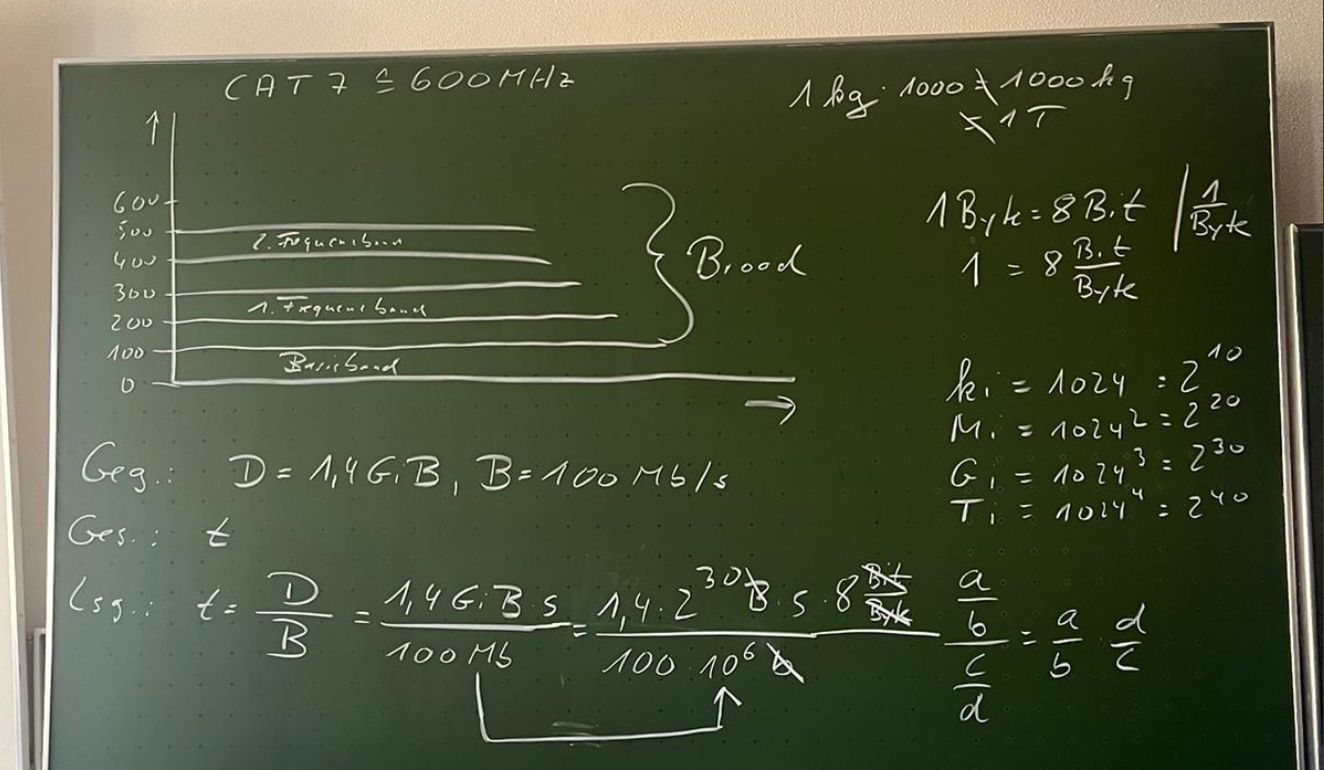 CAT 7 ≙ 600 MHz
600
500
2. Frequenzband
400
300
1. Frequenzband
200
100
Basisband
0
Broad
1 kg · 1000 = 1000 kg
= 1 T
1 Byte = 8 Bit | 1/Byte
1 = 8 Bit/Byte
ki = 1024 = 2^10
Mi = 1024^2 = 2^20
Gi = 1024^3 = 2^30
Ti = 1024^4 = 2^40
Geg.: D = 1,4 GiB, B = 100 Mb/s
Ges.: t
Lsg.: t = D/B = 1,4 GiB · s / 100 Mb = 1,4 · 2^30 B · s · 8 Bit/Byte / 100 · 10^6 b
a/b / c/d = a/b · d/c